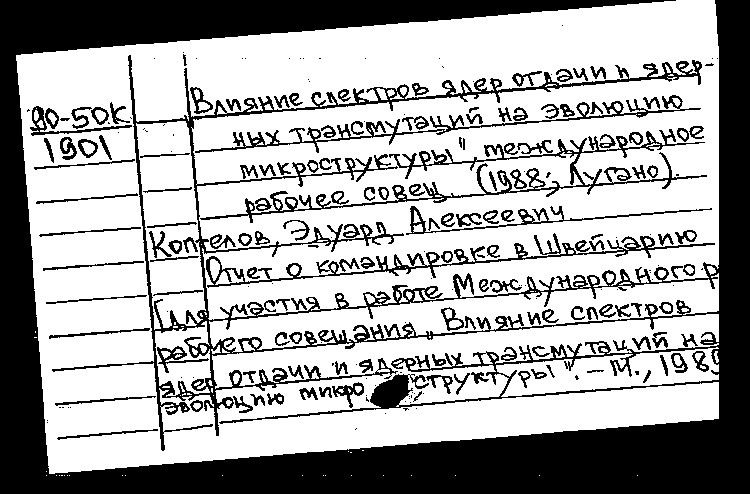 90-50К
1901
Влияние спектров ядер отдачи и ядер-
ных трансмутаций на эволюцию
микроструктуры", международное
рабочее совещ. (1988; Лугано).
Коптелов, Эдуард Алексеевич
Отчет о командировке в Швейцарию
[для участия в работе Международного р
рабочего совещания „Влияние спектров
ядер отдачи и ядерных трансмутаций на
эволюцию микро структуры". – М., 1989